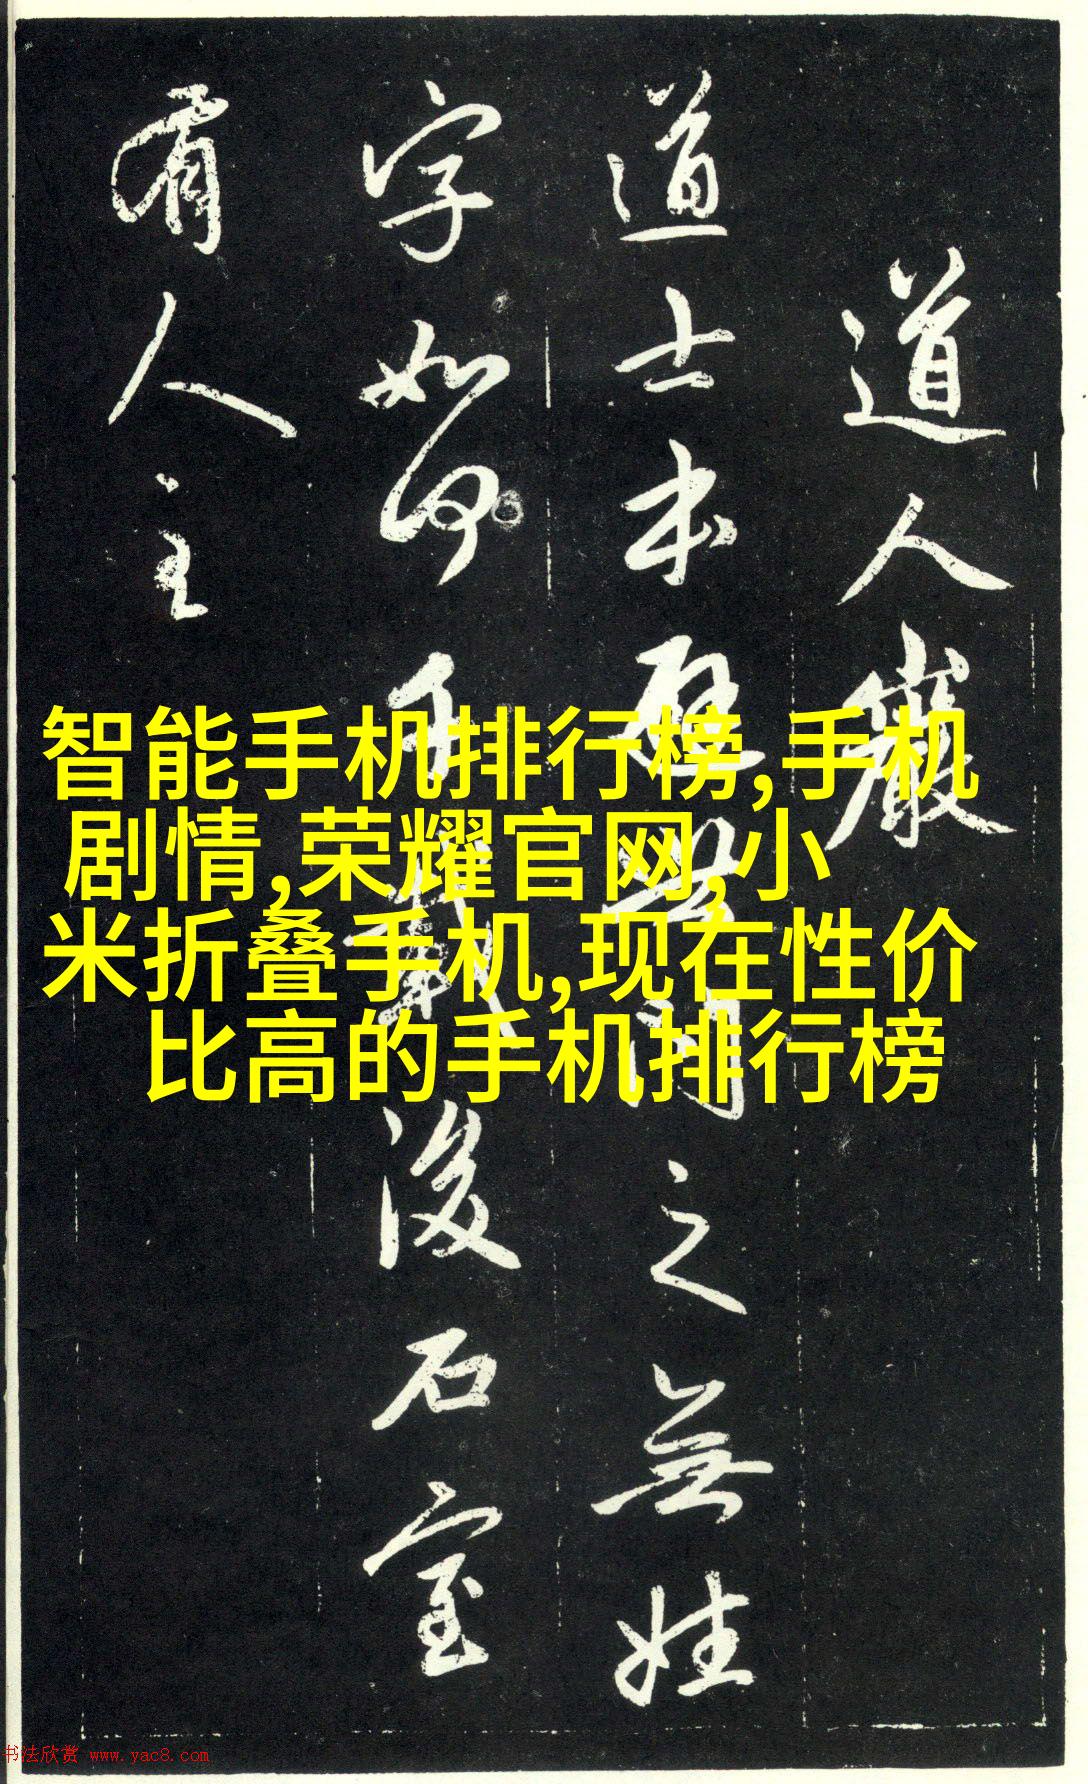 道人巖
道士本避世之無姓
字如何後石室
有人主
智能手机排行榜,手机
剧情,荣耀官网,小
米折叠手机,现在性价
比高的手机排行榜
书法欣赏 www.yac8.com